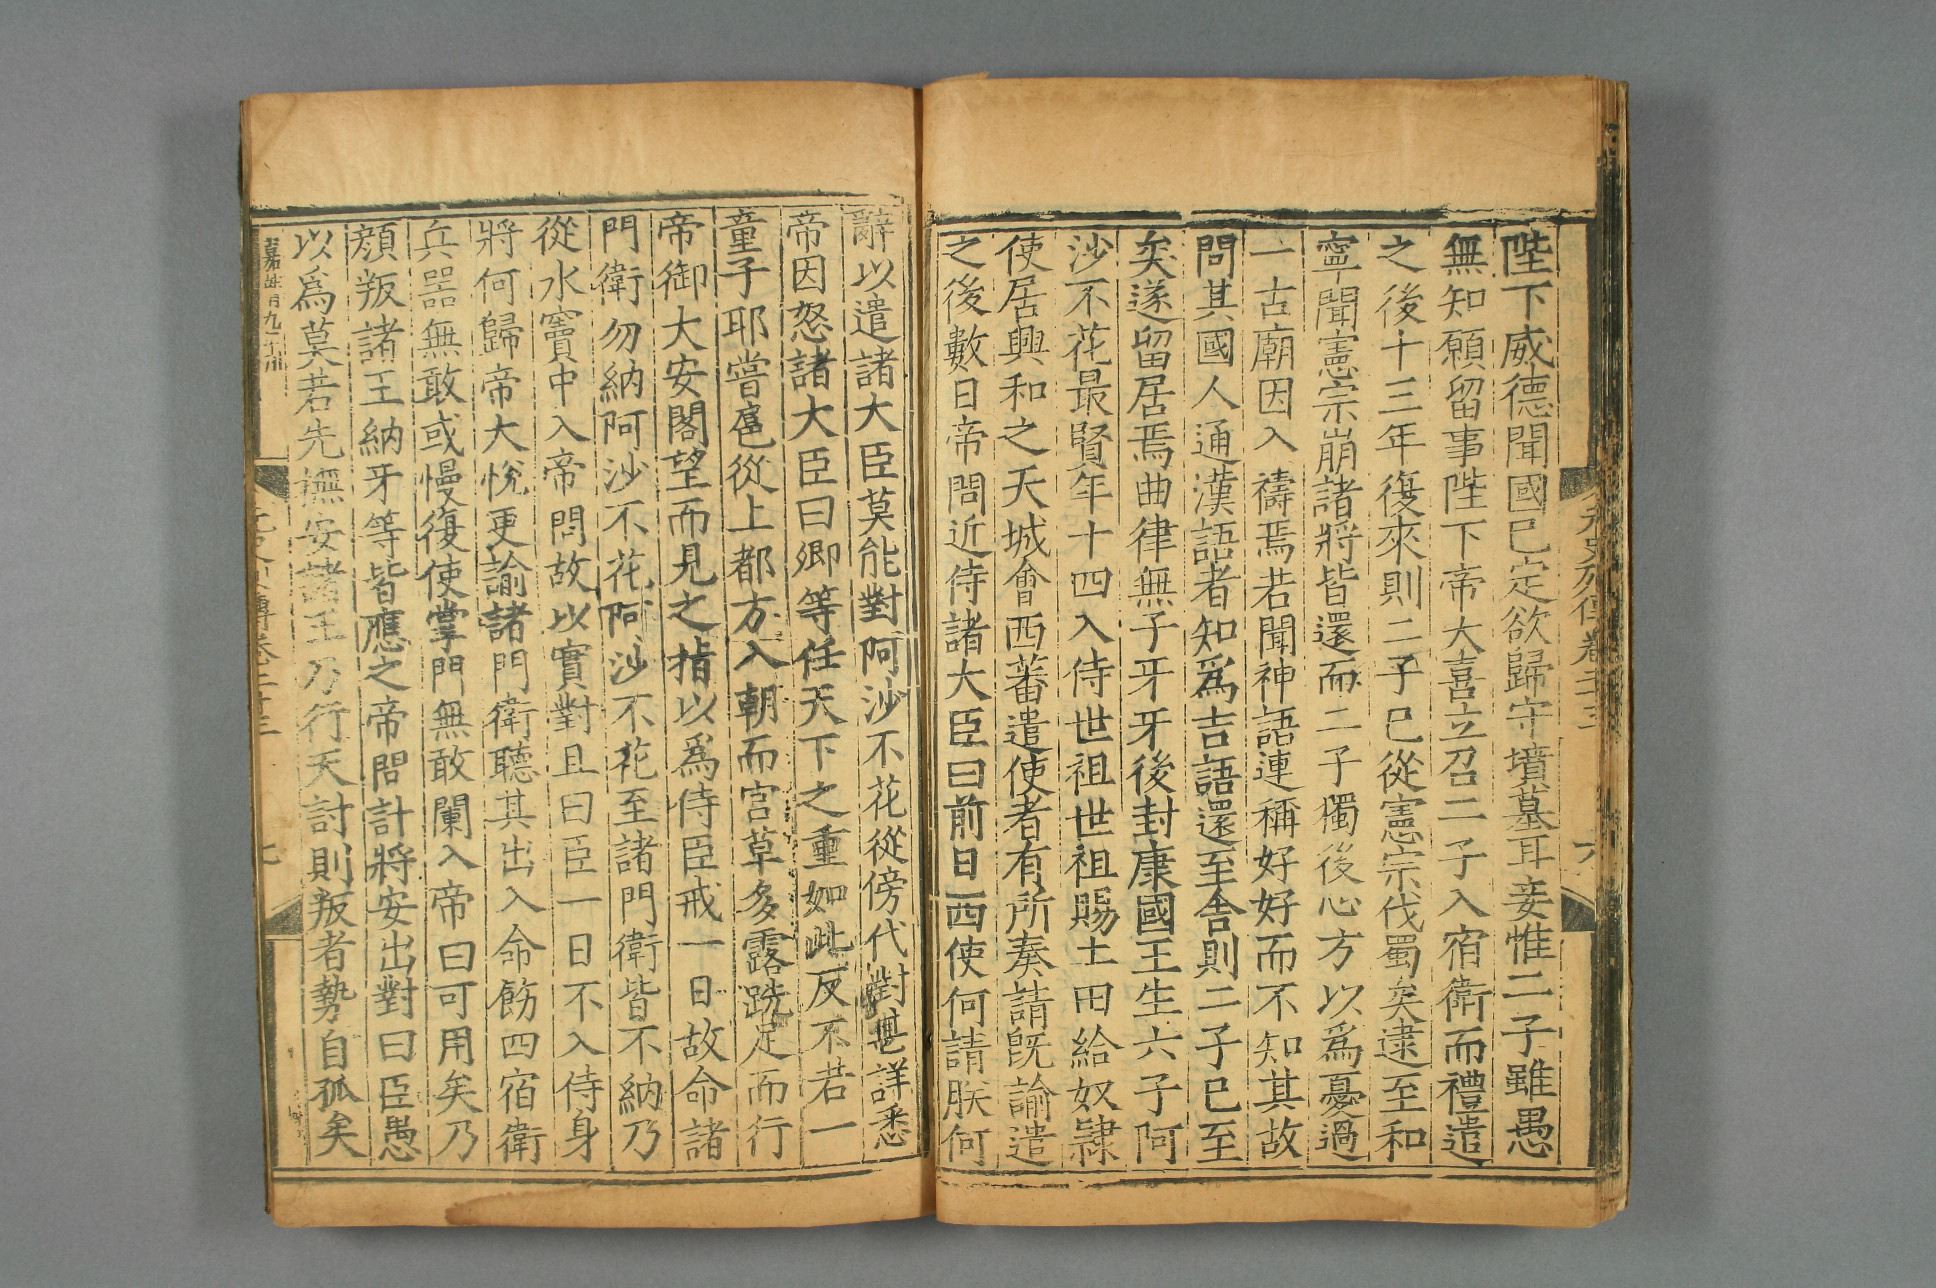 陛下威德聞國已定欲歸守墳墓耳妾惟二子雖愚
無知願留事陛下帝大喜立召二子入宿衛而禮遣
之後十三年復來則二子已從憲宗伐蜀矣逮至和
寧聞憲宗崩諸將皆還而二子獨後心方以爲憂過
一古廟因入禱焉若聞神語連稱好好而不知其故
問其國人通漢語者知爲吉語還至舍則二子已至
矣遂留居焉曲律無子牙牙後封康國王生六子阿
沙不花最賢年十四入侍世祖世祖賜土田給奴隸
使居興和之天城會西蕃遣使者有所奏請旣諭遣
之後數日帝問近侍諸大臣曰前日西使何請朕何
元史列傳卷二十三
六
辭以遣諸大臣莫能對阿沙不花從傍代對甚詳悉
帝因怒諸大臣曰卿等任天下之重如此反不若一
童子耶嘗扈從上都方入朝而宫草多露跣足而行
帝御大安閣望而見之指以爲侍臣戒一日故命諸
門衛勿納阿沙不花阿沙不花至諸門衛皆不納乃
從水竇中入帝問故以實對且曰臣一日不入侍身
將何歸帝大悅更諭諸門衛聽其出入命飭四宿衛
兵器無敢或慢復使掌門無敢闌入帝曰可用矣乃
顔叛諸王納牙等皆應之帝問計將安出對曰臣愚
以爲莫若先撫安諸王乃行天討則叛者勢自孤矣
元史列傳卷二十三
七